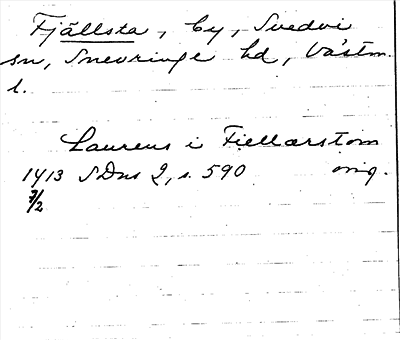 Fjällsta, by, Svedvi
sn, Snevringe hd, Västm.
l.
Laurens i Fiellarstom
1413 SDns 2, s. 590 orig.
7/2